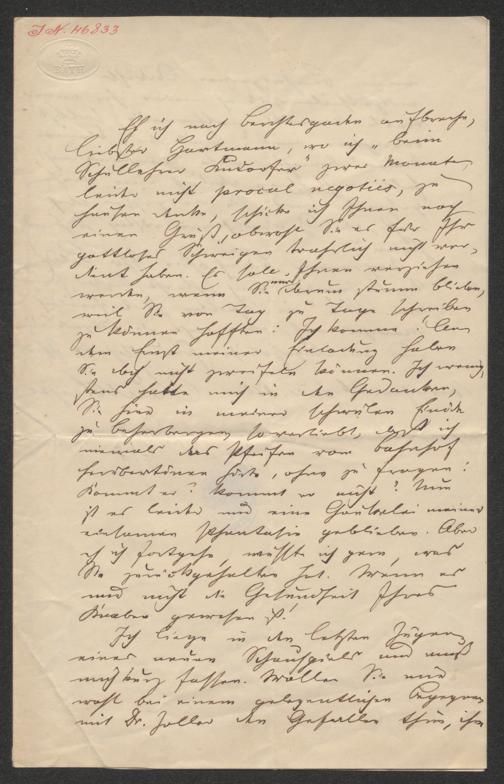 I.N. 46833
BATH
Eh ich nach Berchtesgaden aufbreche,
liebster Hartmann, wo ich „beim
Schullehrer " zwei Monate
leider nicht procul negotiis, zu
hausen denke, schicke ich Ihnen noch
einen Gruß, obwohl Sie es für Ihr
gottloses Schweigen wahrlich nicht ver-
dient haben. Es soll Ihnen verziehen
werden, wenn Sie nur darum stumm blieben,
weil Sie von Tag zu Tage schreiben
zu können hofften: Ich komme! An
dem Ernst meiner Einladung haben
Sie doch nicht zweifeln können. Ich wenig-
stens hatte mich in den Gedanken,
Sie hier in meiner schwülen Einöde
zu beherbergen, so verliebt, daß ich
niemals das Pfeifen vom Bahnhof
herübertönen hörte, ohne zu fragen:
Kommt er? Kommt er nicht? Nun
ist es leider nur eine Gaukelei meiner
einsamen Phantasie geblieben. Aber
eh ich fortgehe, wüßte ich gern, was
Sie zurückgehalten hat. Wenn es
nur nicht die Gesundheit Ihres
Knaben gewesen ist!
Ich liege in den letzten Zügen
eines neuen Schauspiels und muß
mich kurz fassen. Wollen Sie mir
wohl bei einem gelegentlichen Begegnen
mit Dr. Zoller den Gefallen thun, ihm